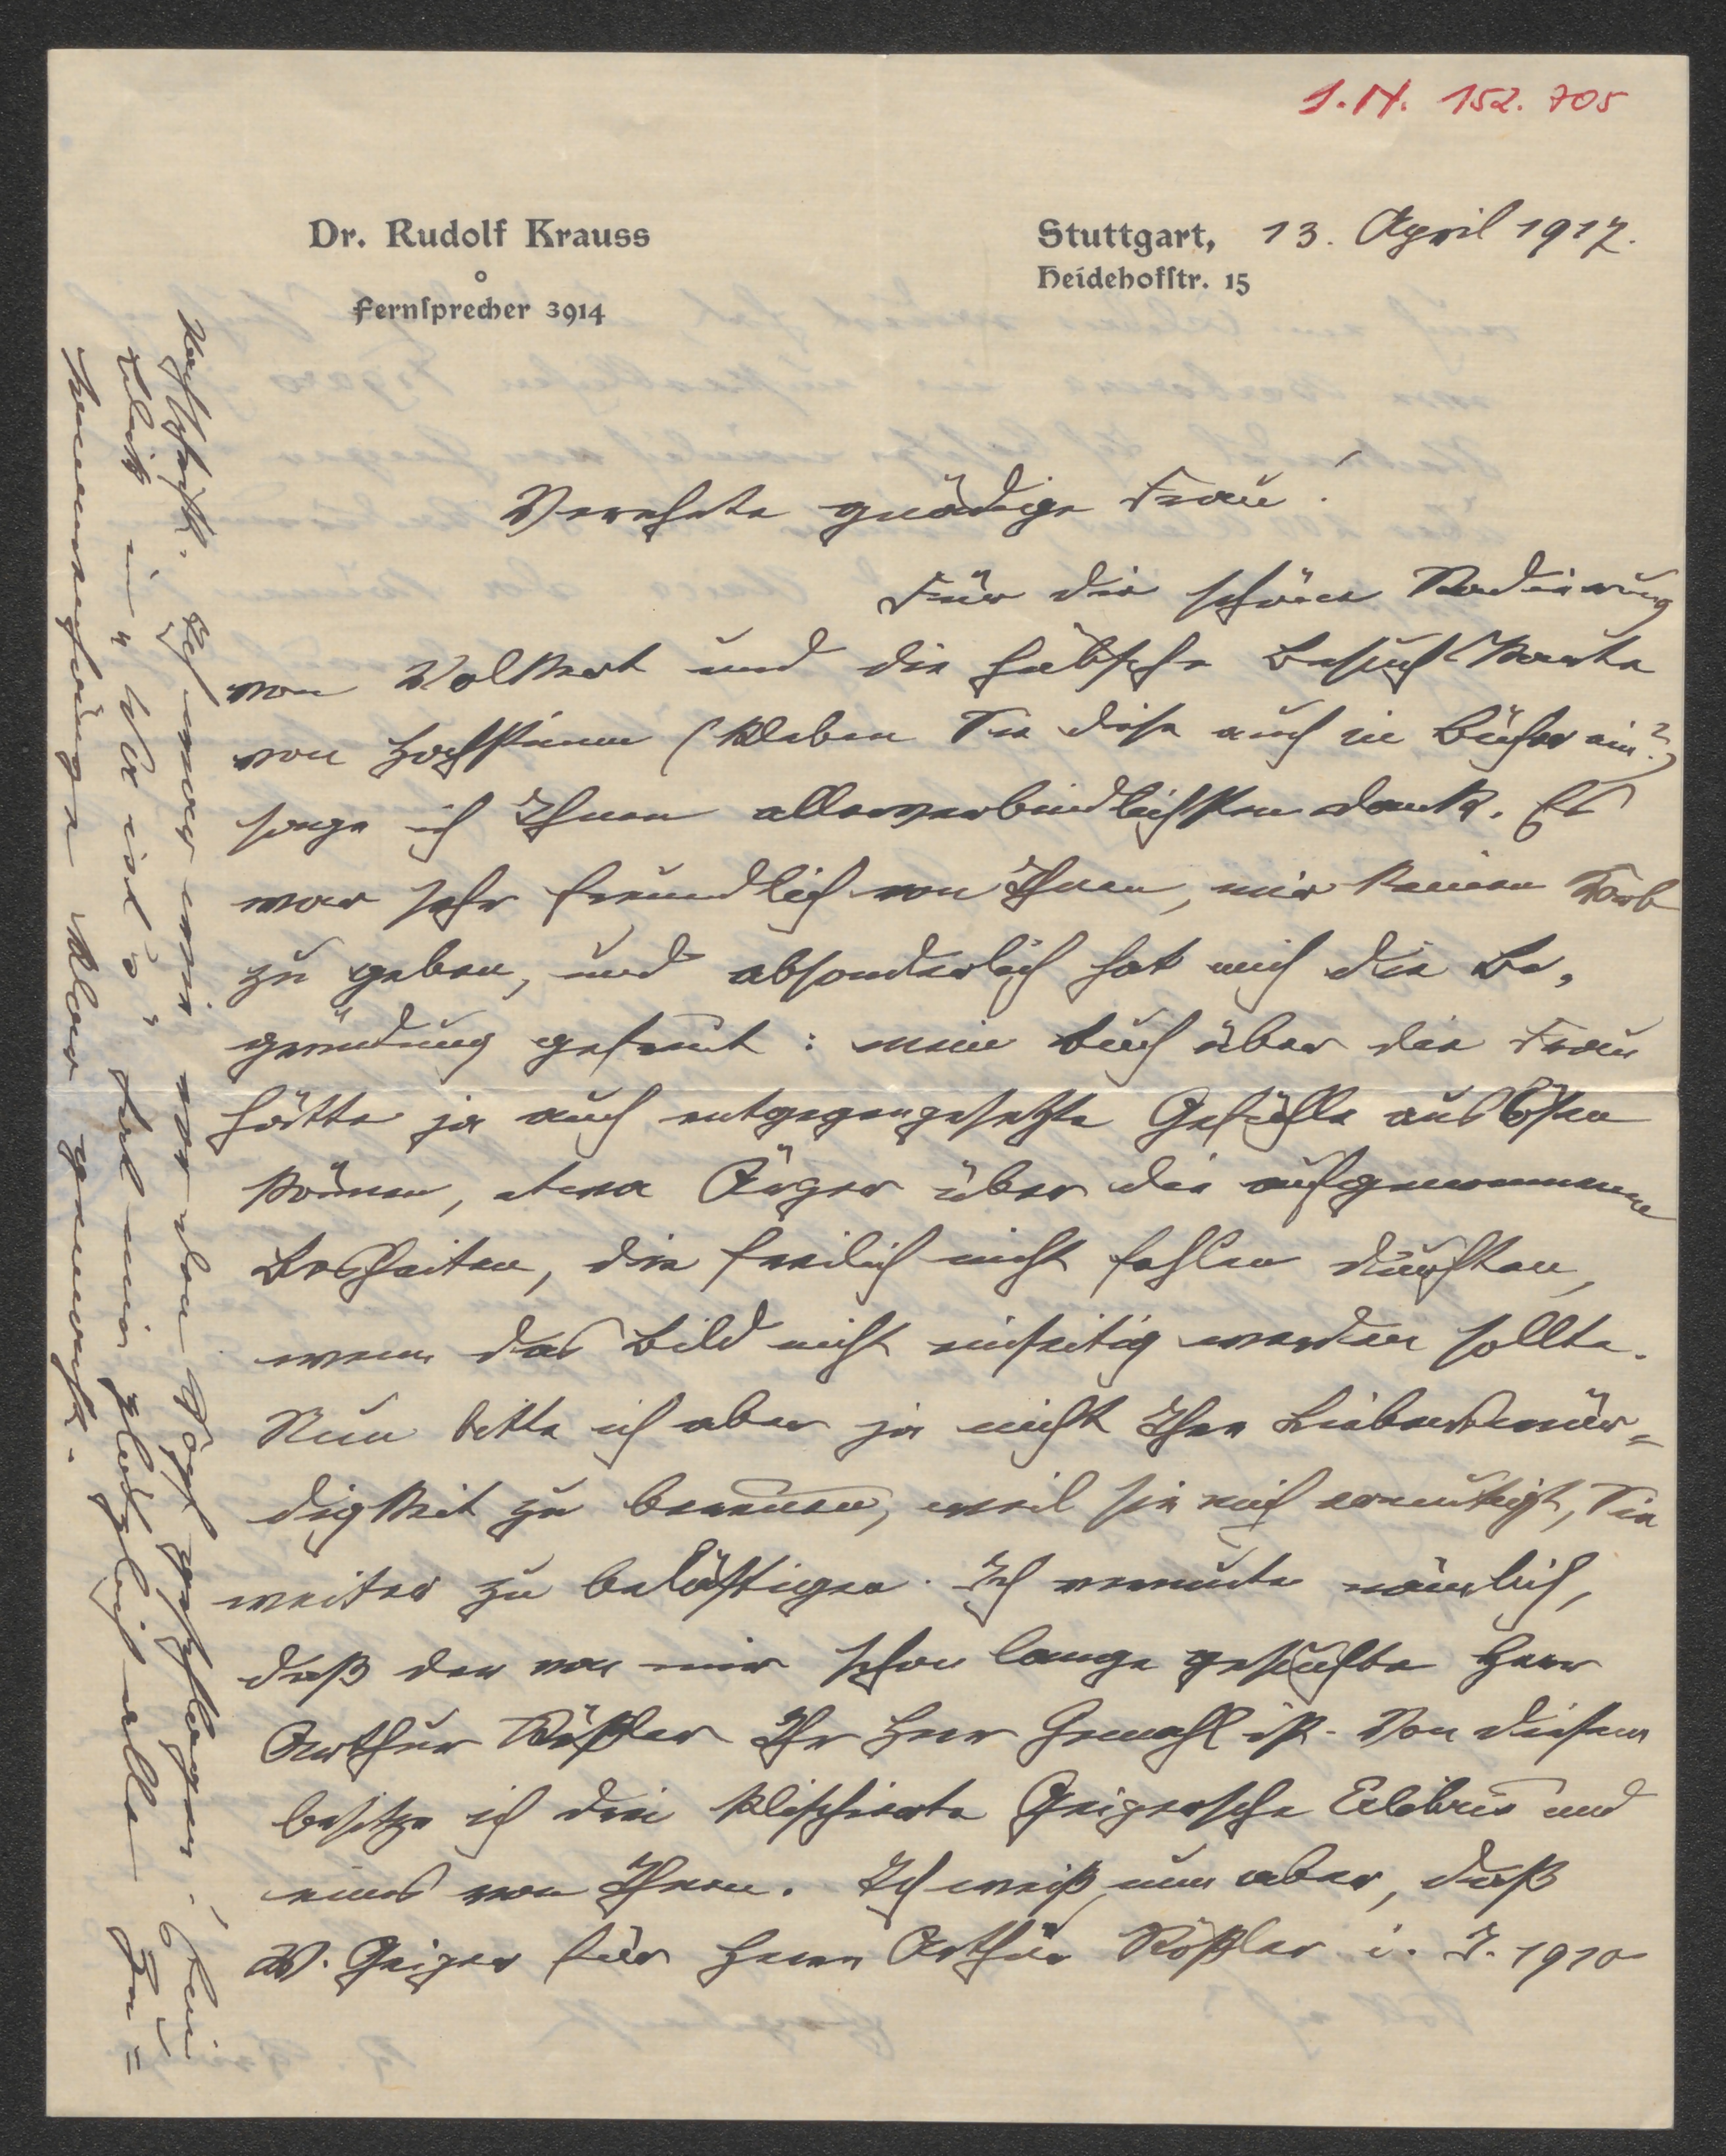 I. N. 152.705
Dr. Rudolf Krauss
Fernsprecher 3914
Stuttgart, 13. April 1917.
Heidehofstr. 15
Verehrte gnädige Frau!
Für die schöne Radierung
von Volkert und die hübsche Besuchskarte
von (kleben Sie diese auch in Bücher ein?)
sage ich Ihnen allerverbindlichsten Dank. Es
war sehr freundlich von Ihnen, mir keinen Korb
zu geben, und absonderlich hat mich die Be-
gründung gefreut: mein Buch über die Frau
hätte ja auch entgegengesetzte Gefühle auslösen
können, etwa Ärger über die aufgenommenen
Bosheiten, die freilich nicht fehlen durften,
wenn das Bild nicht einseitig werden sollte.
Nun bitte ich aber ja nicht Ihre Liebenswür=
digkeit zu bereuen, weil sie mich ermutigt, Sie
weiter zu belästigen. Ich vermute nämlich,
daß der von mir schon lange gesuchte Herr
Arthur Rößler Ihr Herr Gemahl ist. Von diesem
besitze ich drei klischierte Geigersche Exlibris und
eines von Ihnen. Ich weiß nun aber, daß
W. Geiger für Herrn Arthur Rößler i. J. 1910
Nachschrift. Ich war mir vor den Kopf geschlagen; Ein
Blick in " " hat mir gleich alle Zu=
sammenhänge klar gemacht.